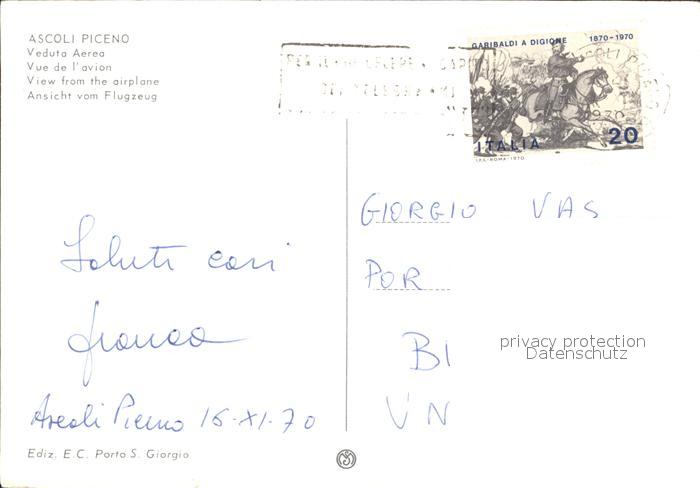 ASCOLI PICENO
Veduta Aerea
Vue de l'avion
View from the airplane
Ansicht vom Flugzeug
GARIBALDI A DIGIONE 1870-1970
ITALIA 20
I.P.S.-ROMA-1970
GIORGIO VAS
POR
BI
VN
privacy protection
Datenschutz
Saluti cari
Franca
Ascoli Piceno 16-XI-70
Ediz. E.C. Porto S. Giorgio